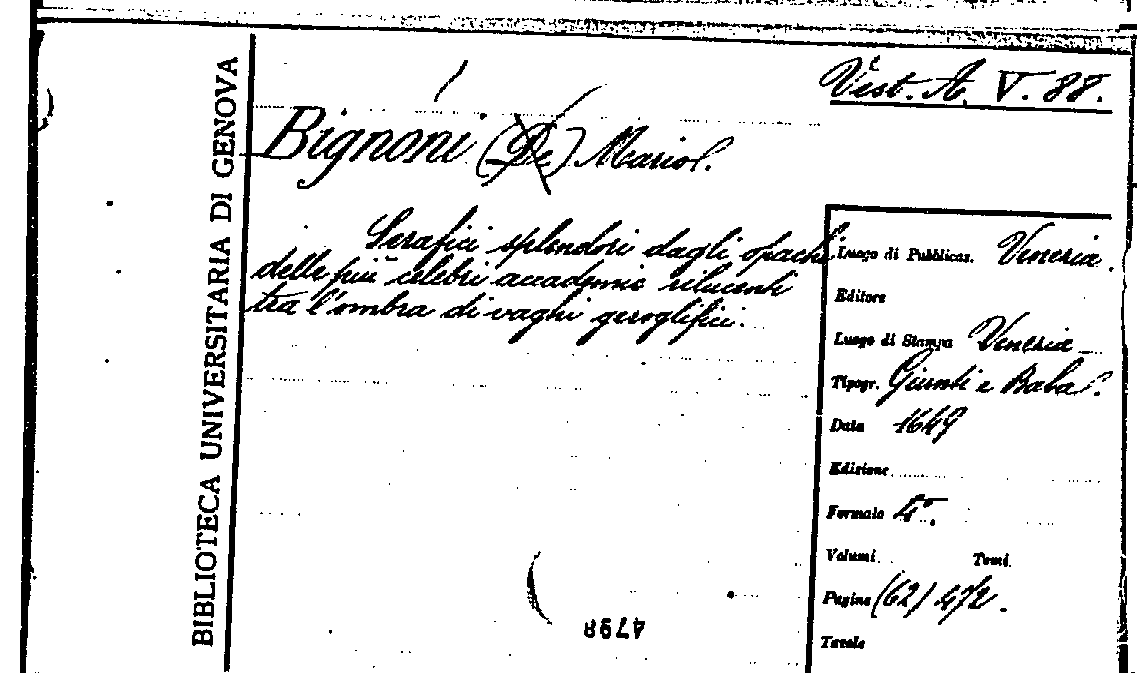 BIBLIOTECA UNIVERSITARIA DI GENOVA
Vest. A. V. 88.
Bignoni (De) Mario.
Serafici splendori dagli opachi
delle più celebri accademie rilucenti
tra l'ombra di vaghi geroglifici.
Luogo di Pubblicaz. Venezia.
Editore
Luogo di Stampa Venezia
Tipogr. Giunti e Baba.
Data 1649
Edizione
Formato 4°.
Volumi Tomi
Pagine (62) 472.
Tavole
4798